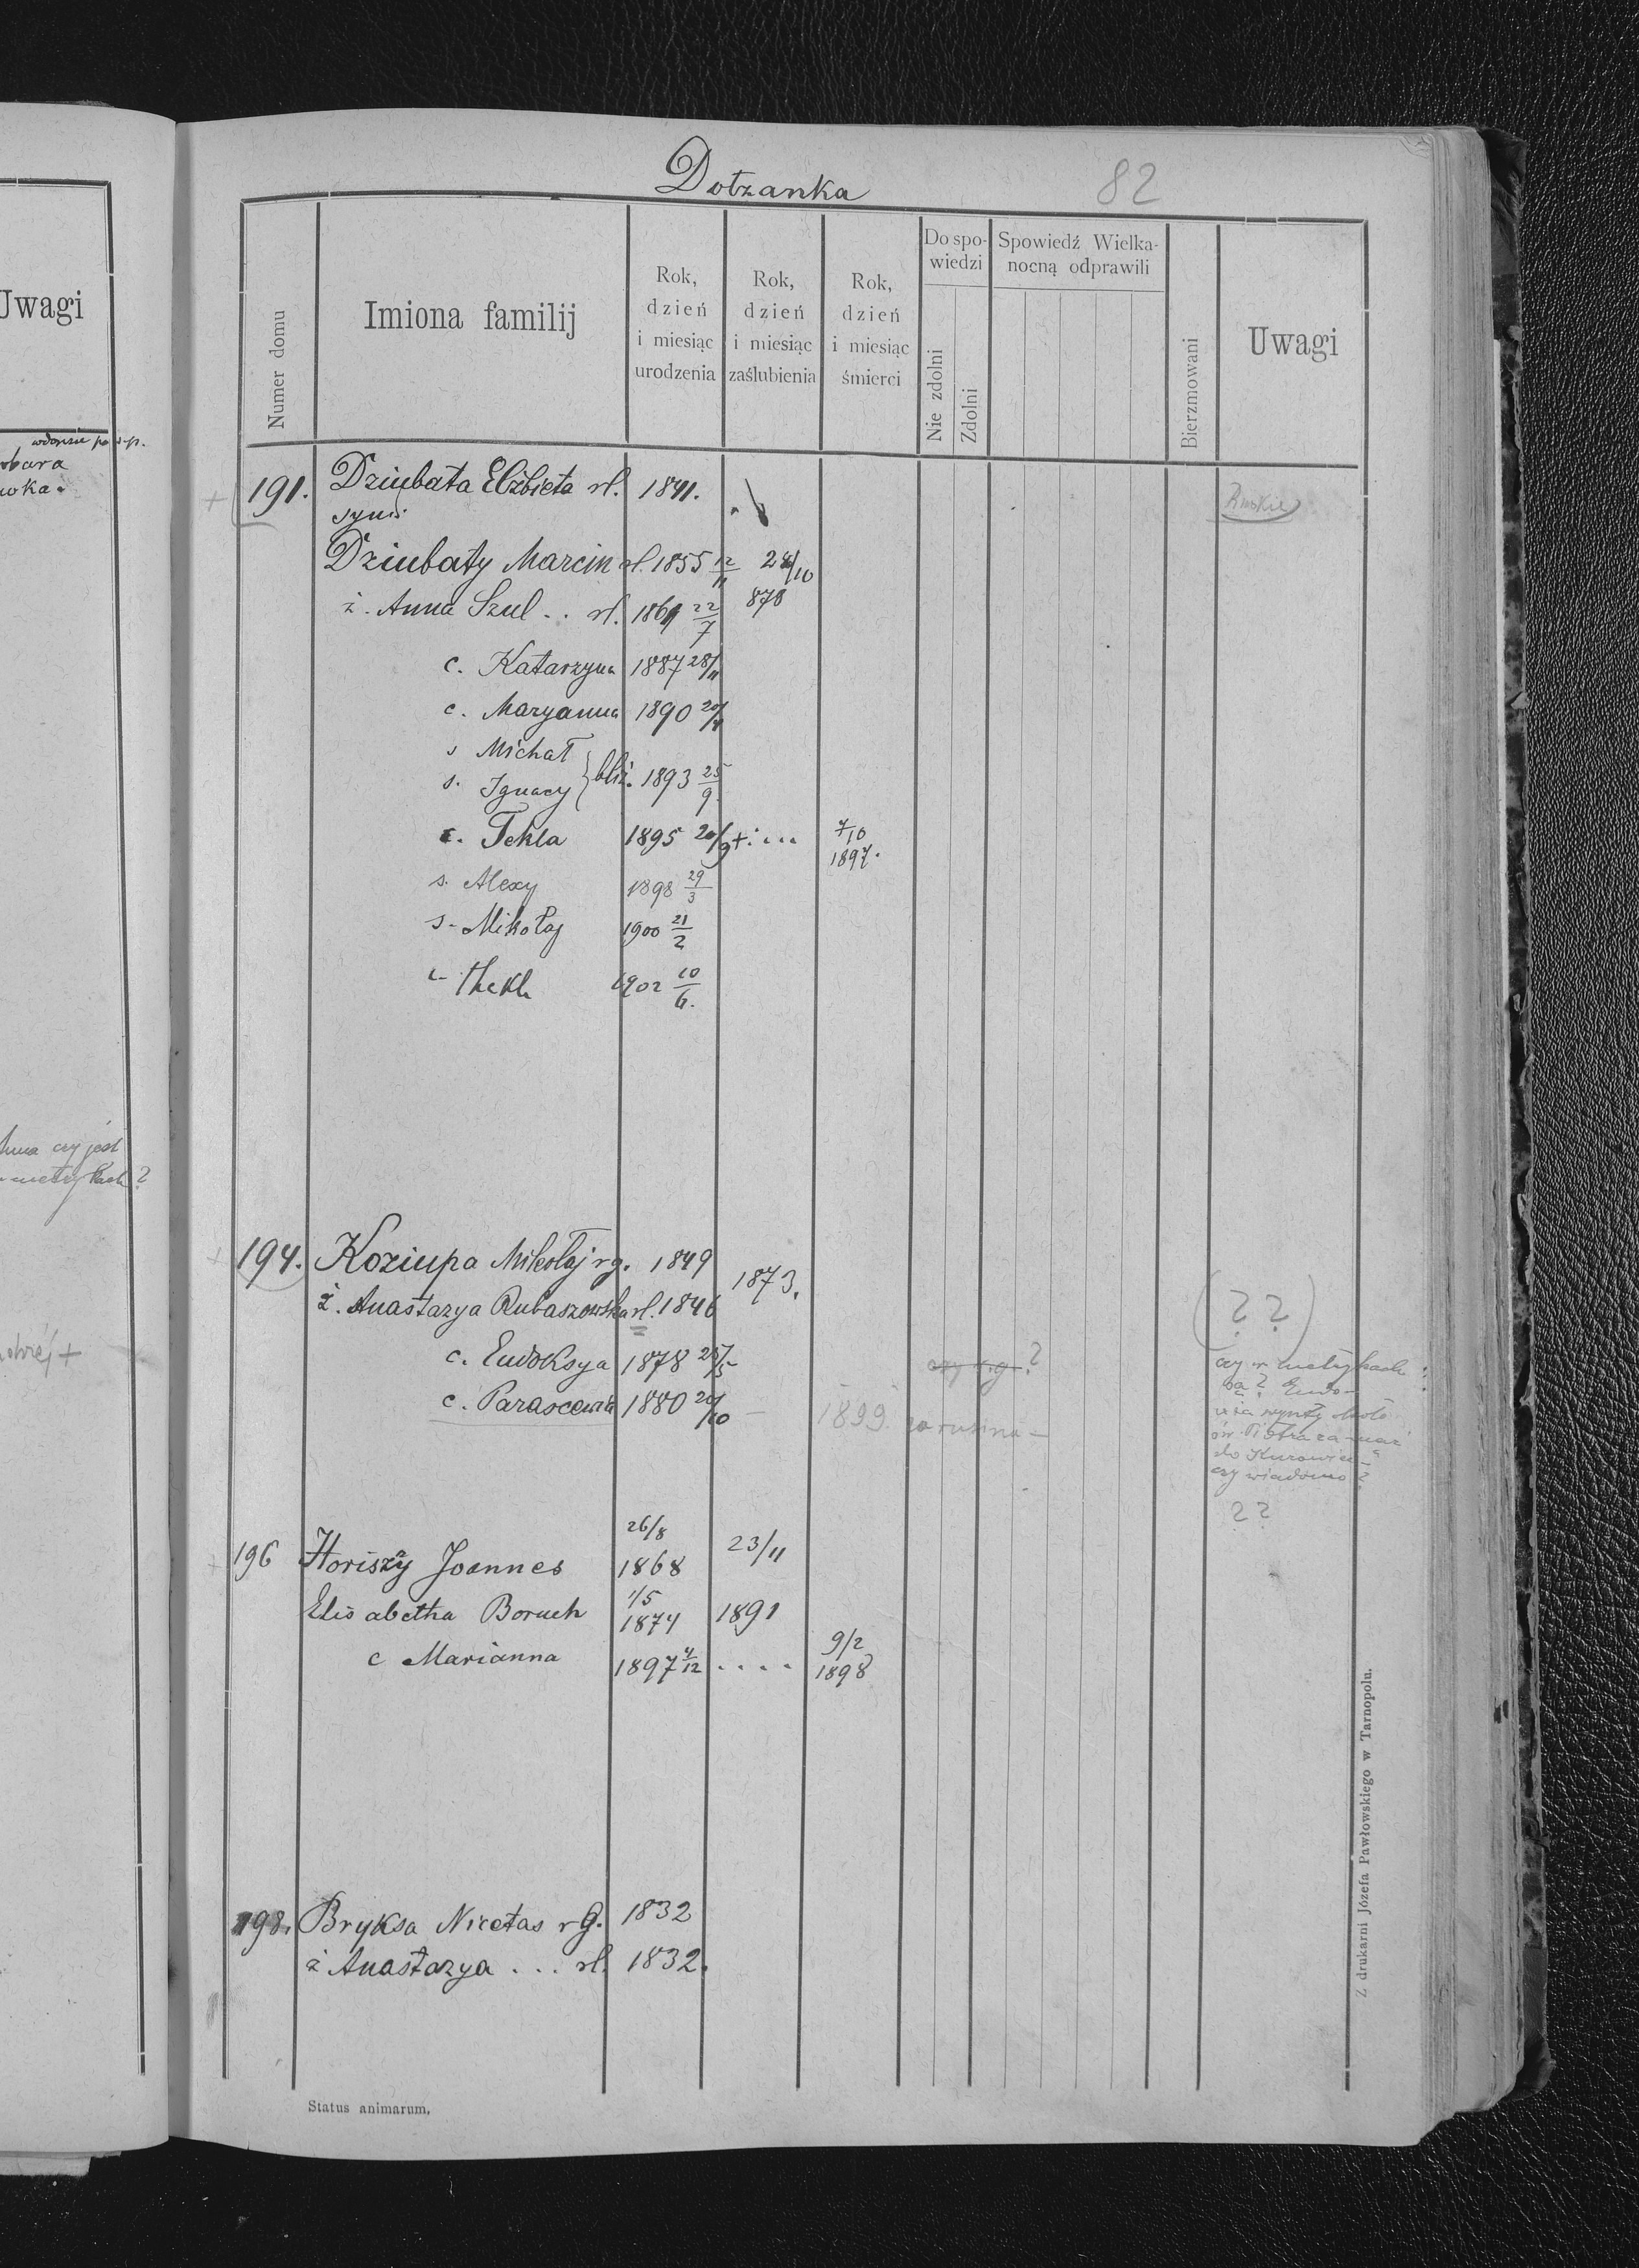 Uwagi
wdowsze po ś.p.
czy jest
metrykach ?
Dołzanka
82
Numer domu
Imiona familij
Rok, dzień i miesiąc urodzenia
Rok, dzień i miesiąc zaślubienia
Rok, dzień i miesiąc śmierci
Do spowiedzi
Nie zdolni
Zdolni
Spowiedź Wielkanocną odprawili
Bierzmowani
Uwagi
191. Dziubata Elżbieta rł. 1841.
syn:
Dziubaty Marcin rł. 1855 12/11 28/10
ż. Anna Szul . . rł. 1861 22/7 878
c. Katarzyna 1887 28/11
c. Maryanna 1890
s Michał
s. Ignacy } bliź. 1893 25/9
c. Tekla 1895 20/9 +: ... 7/10 1897.
s. Alexy 1898 29/3
s. Mikołaj 1900 21/2
c. Thekla 1902 10/6.
194. Koziupa Mikołaj rg. 1849
1873.
ż. Anastazya Rubaszowska rł. 1846
(? ?)
c. Eudoksya 1878 25/5 czy r.g ?
c. Parascewia 1880 20/10 – 1899. za rusina –
czy w metrykach
są ? Eudo-
św. Piotra za mąż
do Kurowiec
czy wiadomo ?
? ?
196 Horiszy Joannes 26/8 1868 23/11
Elisabetha Boruch 1/5 1874 1891
c Marianna 1897 4/12 . . . . 9/2 1898
198. Bryksa Nicetas rg. 1832
ż Anastazya . . . rł. 1832.
Status animarum.
Z drukarni Józefa Pawłowskiego w Tarnopolu.